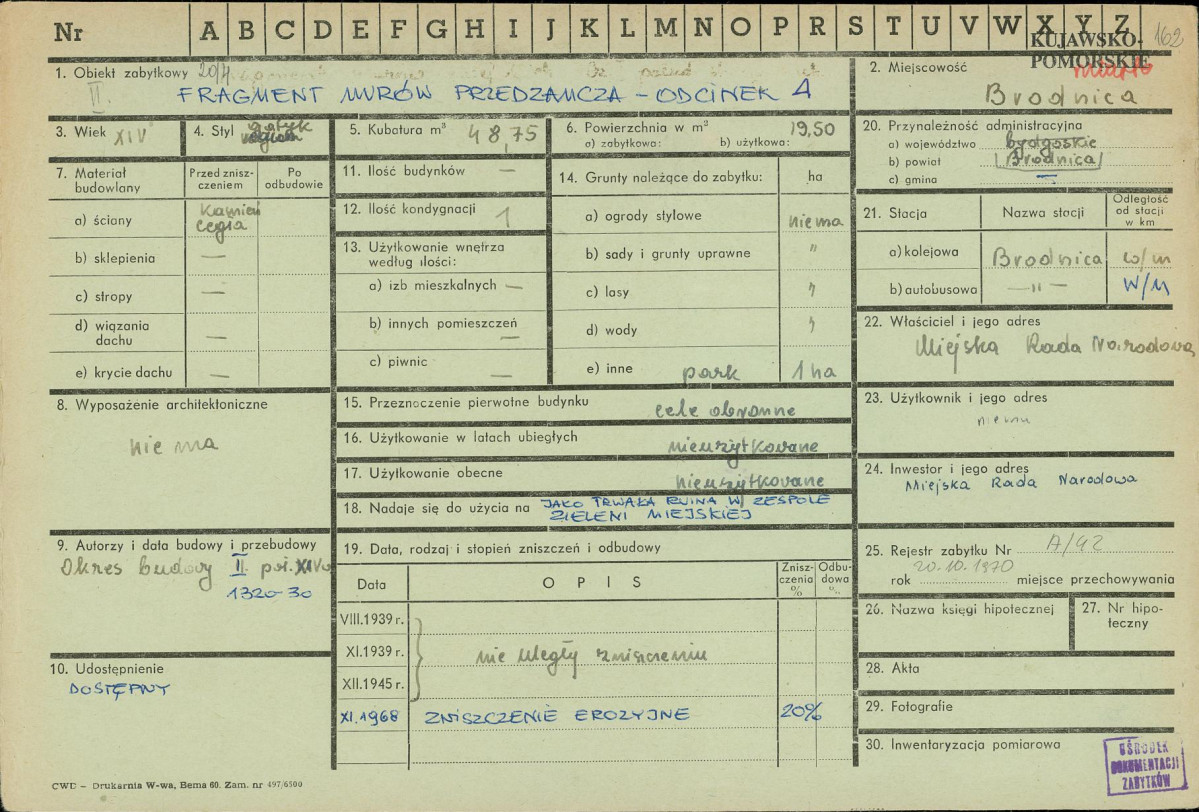 Nr A B C D E F G H I J K L M N O P R S T U V W X Y Z 162
KUJAWSKO-
POMORSKIE
1. Obiekt zabytkowy
II.
FRAGMENT MURÓW PRZEDZAMCZA – ODCINEK 4
2. Miejscowość miasto
Brodnica
3. Wiek XIV
4. Styl gotyk
5. Kubatura m³ 48,75
6. Powierzchnia w m² 19,50
a) zabytkowa: b) użytkowa:
7. Materiał budowlany
Przed znisz-
czeniem
Po
odbudowie
a) ściany kamień
cegła
b) sklepienia —
c) stropy —
d) wiązania
dachu —
e) krycie dachu —
8. Wyposażenie architektoniczne
nie ma
9. Autorzy i data budowy i przebudowy
Okres budowy II poł. XIV w
1320-30
10. Udostępnienie
DOSTĘPNY
11. Ilość budynków —
12. Ilość kondygnacji 1
13. Użytkowanie wnętrza
według ilości:
a) izb mieszkalnych —
b) innych pomieszczeń —
c) piwnic —
14. Grunty należące do zabytku: ha
a) ogrody stylowe nie ma
b) sady i grunty uprawne "
c) lasy "
d) wody "
e) inne park 1 ha
15. Przeznaczenie pierwotne budynku cele obronne
16. Użytkowanie w latach ubiegłych nieużytkowane
17. Użytkowanie obecne nieużytkowane
18. Nadaje się do użycia na JAKO TRWAŁA RUINA W ZESPOLE
ZIELENI MIEJSKIEJ
19. Data, rodzaj i stopień zniszczeń i odbudowy
Data OPIS Znisz-
czenia
%
Odbu-
dowa
%
VIII.1939 r.
XI.1939 r. nie uległy zniszczeniu
XII.1945 r.
XI.1968 ZNISZCZENIE EROZYJNE 20%
20. Przynależność administracyjna
a) województwo bydgoskie
b) powiat Brodnica
c) gmina —
21. Stacja Nazwa stacji Odległość
od stacji
w km
a) kolejowa Brodnica w/m
b) autobusowa —"— W/M
22. Właściciel i jego adres
Miejska Rada Narodowa
23. Użytkownik i jego adres
nie ma
24. Inwestor i jego adres
Miejska Rada Narodowa
25. Rejestr zabytku Nr A/42
20.10.1970
rok miejsce przechowywania
26. Nazwa księgi hipotecznej
27. Nr hipo-
teczny
28. Akta
29. Fotografie
30. Inwentaryzacja pomiarowa
OŚRODEK
DOKUMENTACJI
ZABYTKÓW
CWD – Drukarnia W-wa, Bema 60. Zam. nr 497/6500